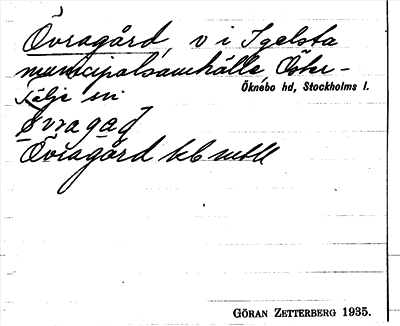 Övragård, v i Igelsta
municipalsamhälle, Öster-
tälje sn
Öknebo hd, Stockholms l.
øvragaḍ
Övragård kb mtll
GÖRAN ZETTERBERG 1935.